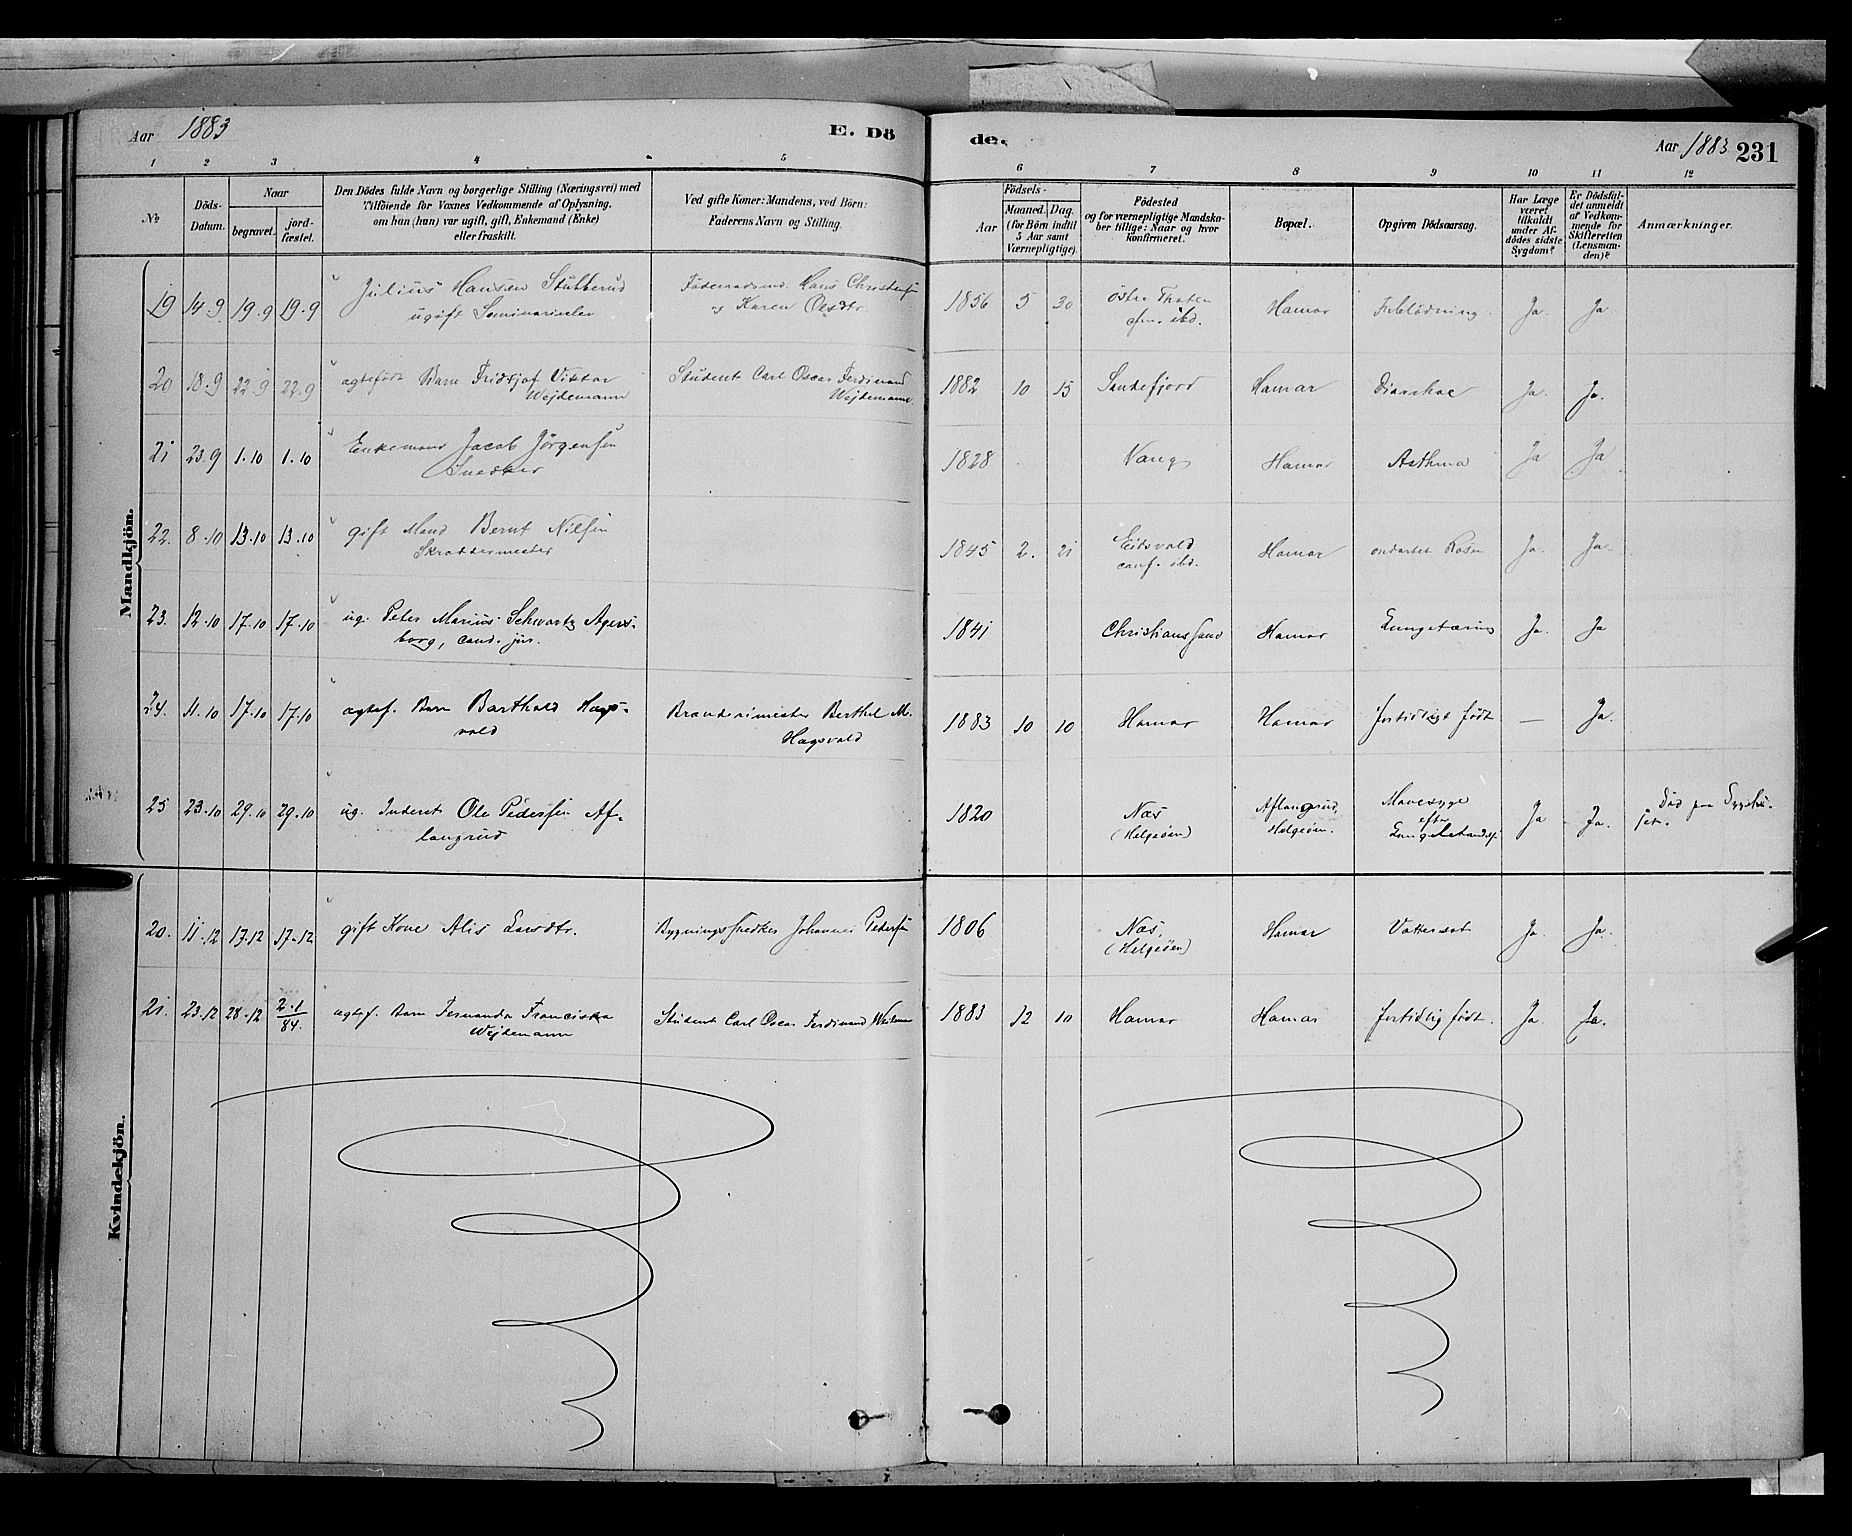 Aar 1883 E. Dö de. Aar 1883 231
1 2 3 4 5 6 7 8 9 10 11 12
No
Döds-
Datum.
Naar
begravet.
jord-
fæstet.
Den Dödes fulde Navn og borgerlige Stilling (Næringsvei) med
Tilföiende for Voxnes Vedkommende af Oplysning,
om han (hun) var ugift, gift, Enkemand (Enke)
eller fraskilt.
Ved gifte Koner: Mandens, ved Börn:
Faderens Navn og Stilling.
Födsels-
Aar
Maaned. Dag.
(for Börn indtil
5 Aar samt
Værnepligtige).
Födested
og for værnepligtige Mandska-
ber tillige: Naar og hvor
konfirmeret.
Bopæl.
Opgiven Dödsaarsag.
Har Læge
været
tilkaldt
under Af-
dödes sidste
Sygdom?
Er Dödsfal-
det anmeldt
af Vedkom-
mende for
Skifteretten
(Lensman-
den)?
Anmærkninger.
Mandkjön.
19 14.9 19.9 19.9 Julius Hansen Stubberud Hans Christensen 1856 5 30 östre Thoten Hamar Forblödning. Ja. Ja.
ugift Seminarielev og Karen Olsdtr. ibd.
20 18.9 22.9 22.9 ægtefödt Barn Fridtjof Viktor Student Carl Oscar Ferdinand 1882 10 15 Sandefjord Hamar Diarrhoe Ja. Ja.
Wejdemann Wejdemann.
21 23.9 1.10 1.10 Enkemand Jacob Jörgensen 1828 Vang Hamar Asthma Ja Ja
Snedker
22. 8.10 13.10 13.10 gift Mand Bernt Nilsen 1845 2. 21 Eidsvold Hamar ondartet Rosen Ja. Ja.
Skræddermester conf. ibd.
23. 12.10 17.10 17.10 ug. Peter Marius Schwartz Agers- 1841 Christianssand Hamar Lungetæring Ja. Ja
borg, cand. jur.
24. 11.10 17.10 17.10 ægtef. Barn Barthold Hags- Branderimester Berthel M. 1883 10 10 Hamar Hamar fortidligt födt — Ja.
vold Hagsvold
25 23.10 29.10 29.10 ug. Inderst Ole Pedersen Af- 1820 Næs Aflangrud, Mavesyge Ja Ja. Död paa Sygehu-
langrud (Helgeöen) Helgeöen. efter set.
Kvindekjön.
20. 11.12 17.12 17.12 gift Kone Alis Larsdtr. Bygningssnedker Johannes Pedersen 1806 Næs, Hamar Vattersot Ja. Ja.
(Helgeöen)
21. 23.12 28.12 2.1/84. ægtef. Barn Fernanda Franciska Student Carl Oscar Ferdinand 1883 12 10 Hamar Hamar fortidlig födt. Ja Ja.
Wejdemann